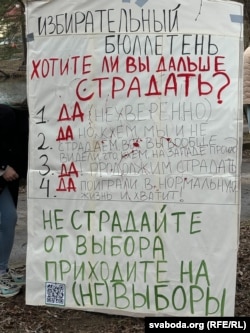 ИЗБИРАТЕЛЬНЫЙ
БЮЛЛЕТЕНЬ
ХОТИТЕ ЛИ ВЫ ДАЛЬШЕ
СТРАДАТЬ?
1. ДА (НЕУВЕРЕННО)
2. ДА НО, КХЕМ, МЫ И НЕ
СТРАДАЕМ ВЫ ВЫ ВООБЩЕ
ВИДЕЛИ ЧТО ТАМ НА ЗАПАДЕ
3. ДА ПРОДОЛЖИМ СТРАДАТЬ
4. ДА ПОИГРАЛИ В НОРМАЛЬНУЮ
ЖИЗНЬ И ХВАТИТ!
НЕ СТРАДАЙТЕ
ОТ ВЫБОРА
ПРИХОДИТЕ НА
(НЕ)ВЫБОРЫ
svaboda.org (RFE/RL)